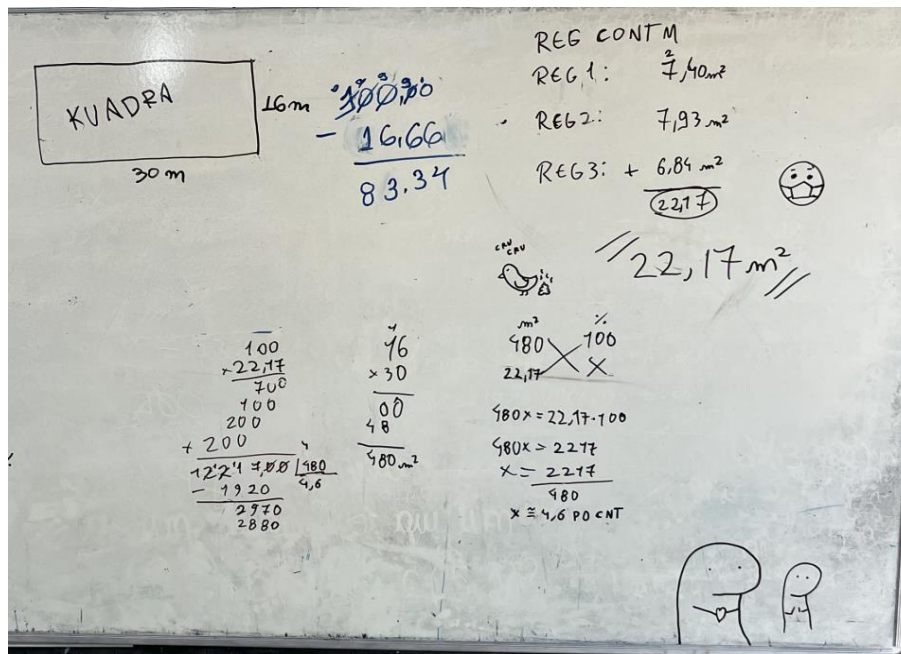 KUADRA
16m
30 m
100,00
- 16,66
83.34
REG CONTM
REG 1: 7,40m²
REG 2: 7,93 m²
REG 3: + 6,84 m²
22,17
CRU
CRU
22,17 m²
100
×22,17
700
100
200
+ 200
480
4,6
- 1920
2970
2880
16
×30
00
48
480 m²
m² %
480 100
22,17 X
480x = 22,17.100
480x = 2217
x = 2217
480
x ≅ 4,6 PO CNT